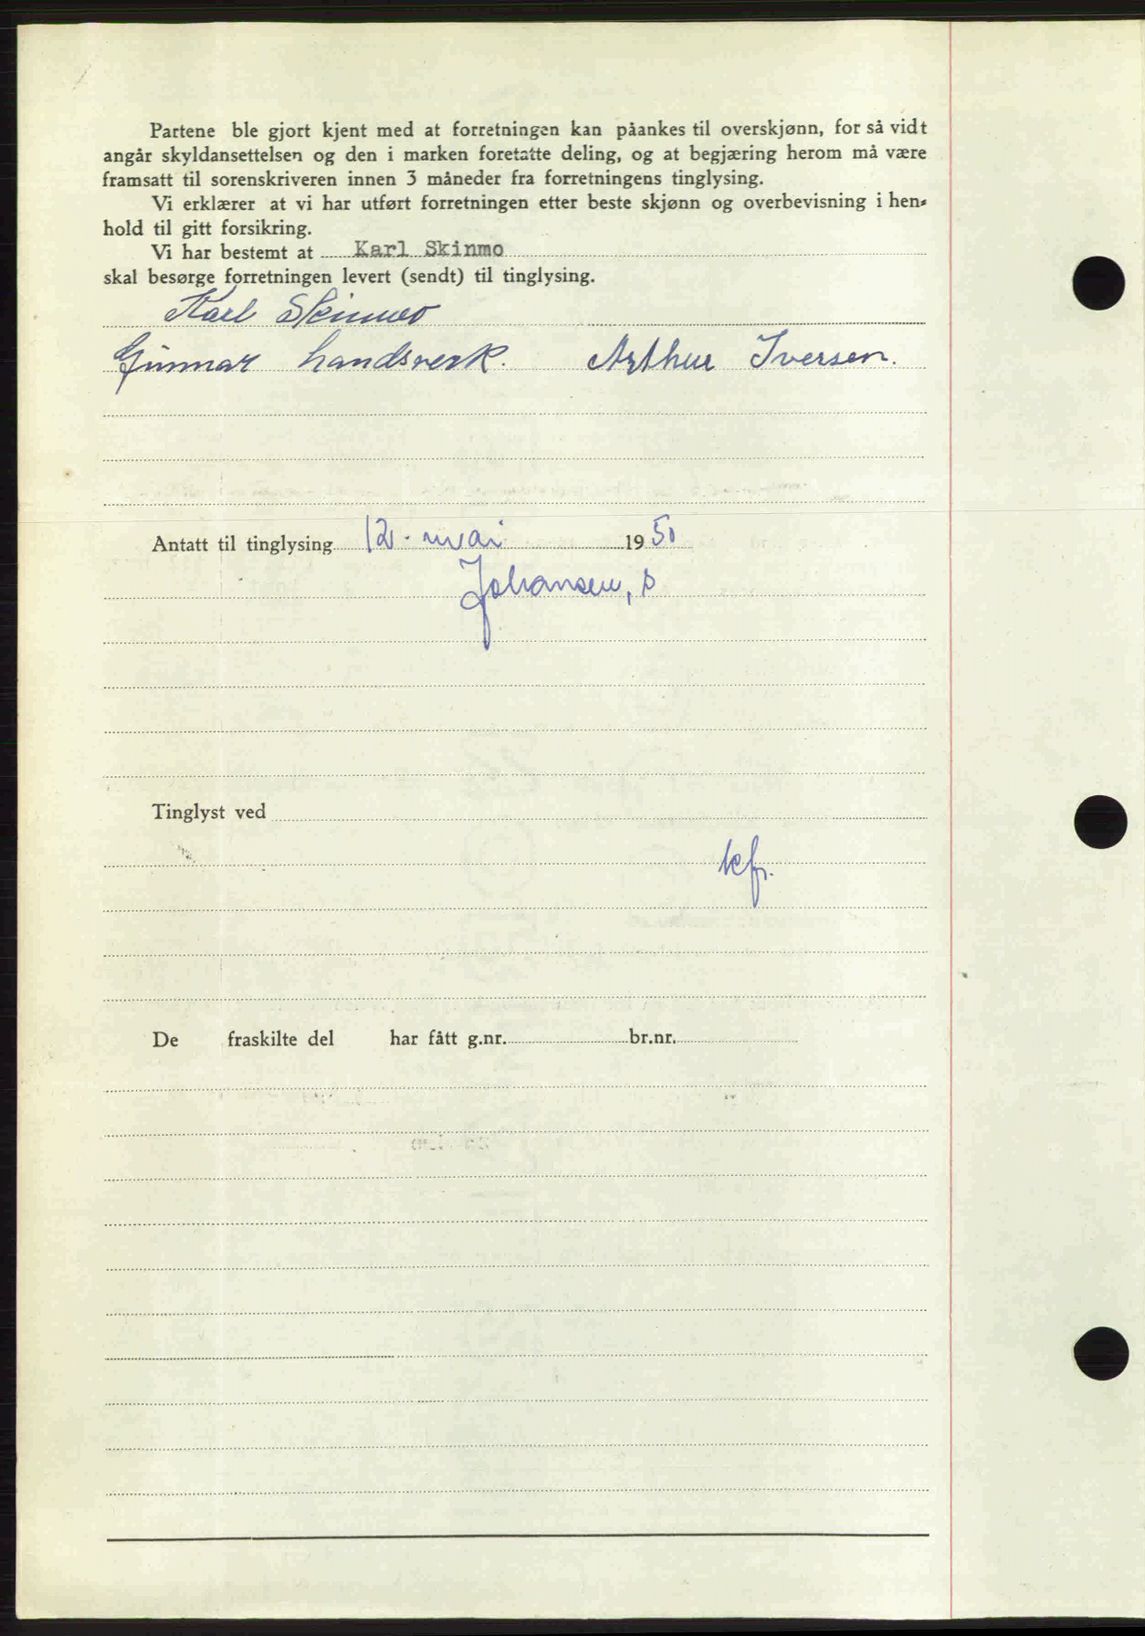 Partene ble gjort kjent med at forretningen kan påankes til overskjønn, for så vidt
angår skyldansettelsen og den i marken foretatte deling, og at begjæring herom må være
framsatt til sorenskriveren innen 3 måneder fra forretningens tinglysing.
Vi erklærer at vi har utført forretningen etter beste skjønn og overbevisning i hen-
hold til gitt forsikring.
Vi har bestemt at Karl Skinmo
skal besørge forretningen levert (sendt) til tinglysing.
Karl Skinmo
Gunnar Landsverk. Arthur Iversen.
Antatt til tinglysing 12. mai 1950
Johansen, s
Tinglyst ved
kfr.
De fraskilte del har fått g.nr. br.nr.